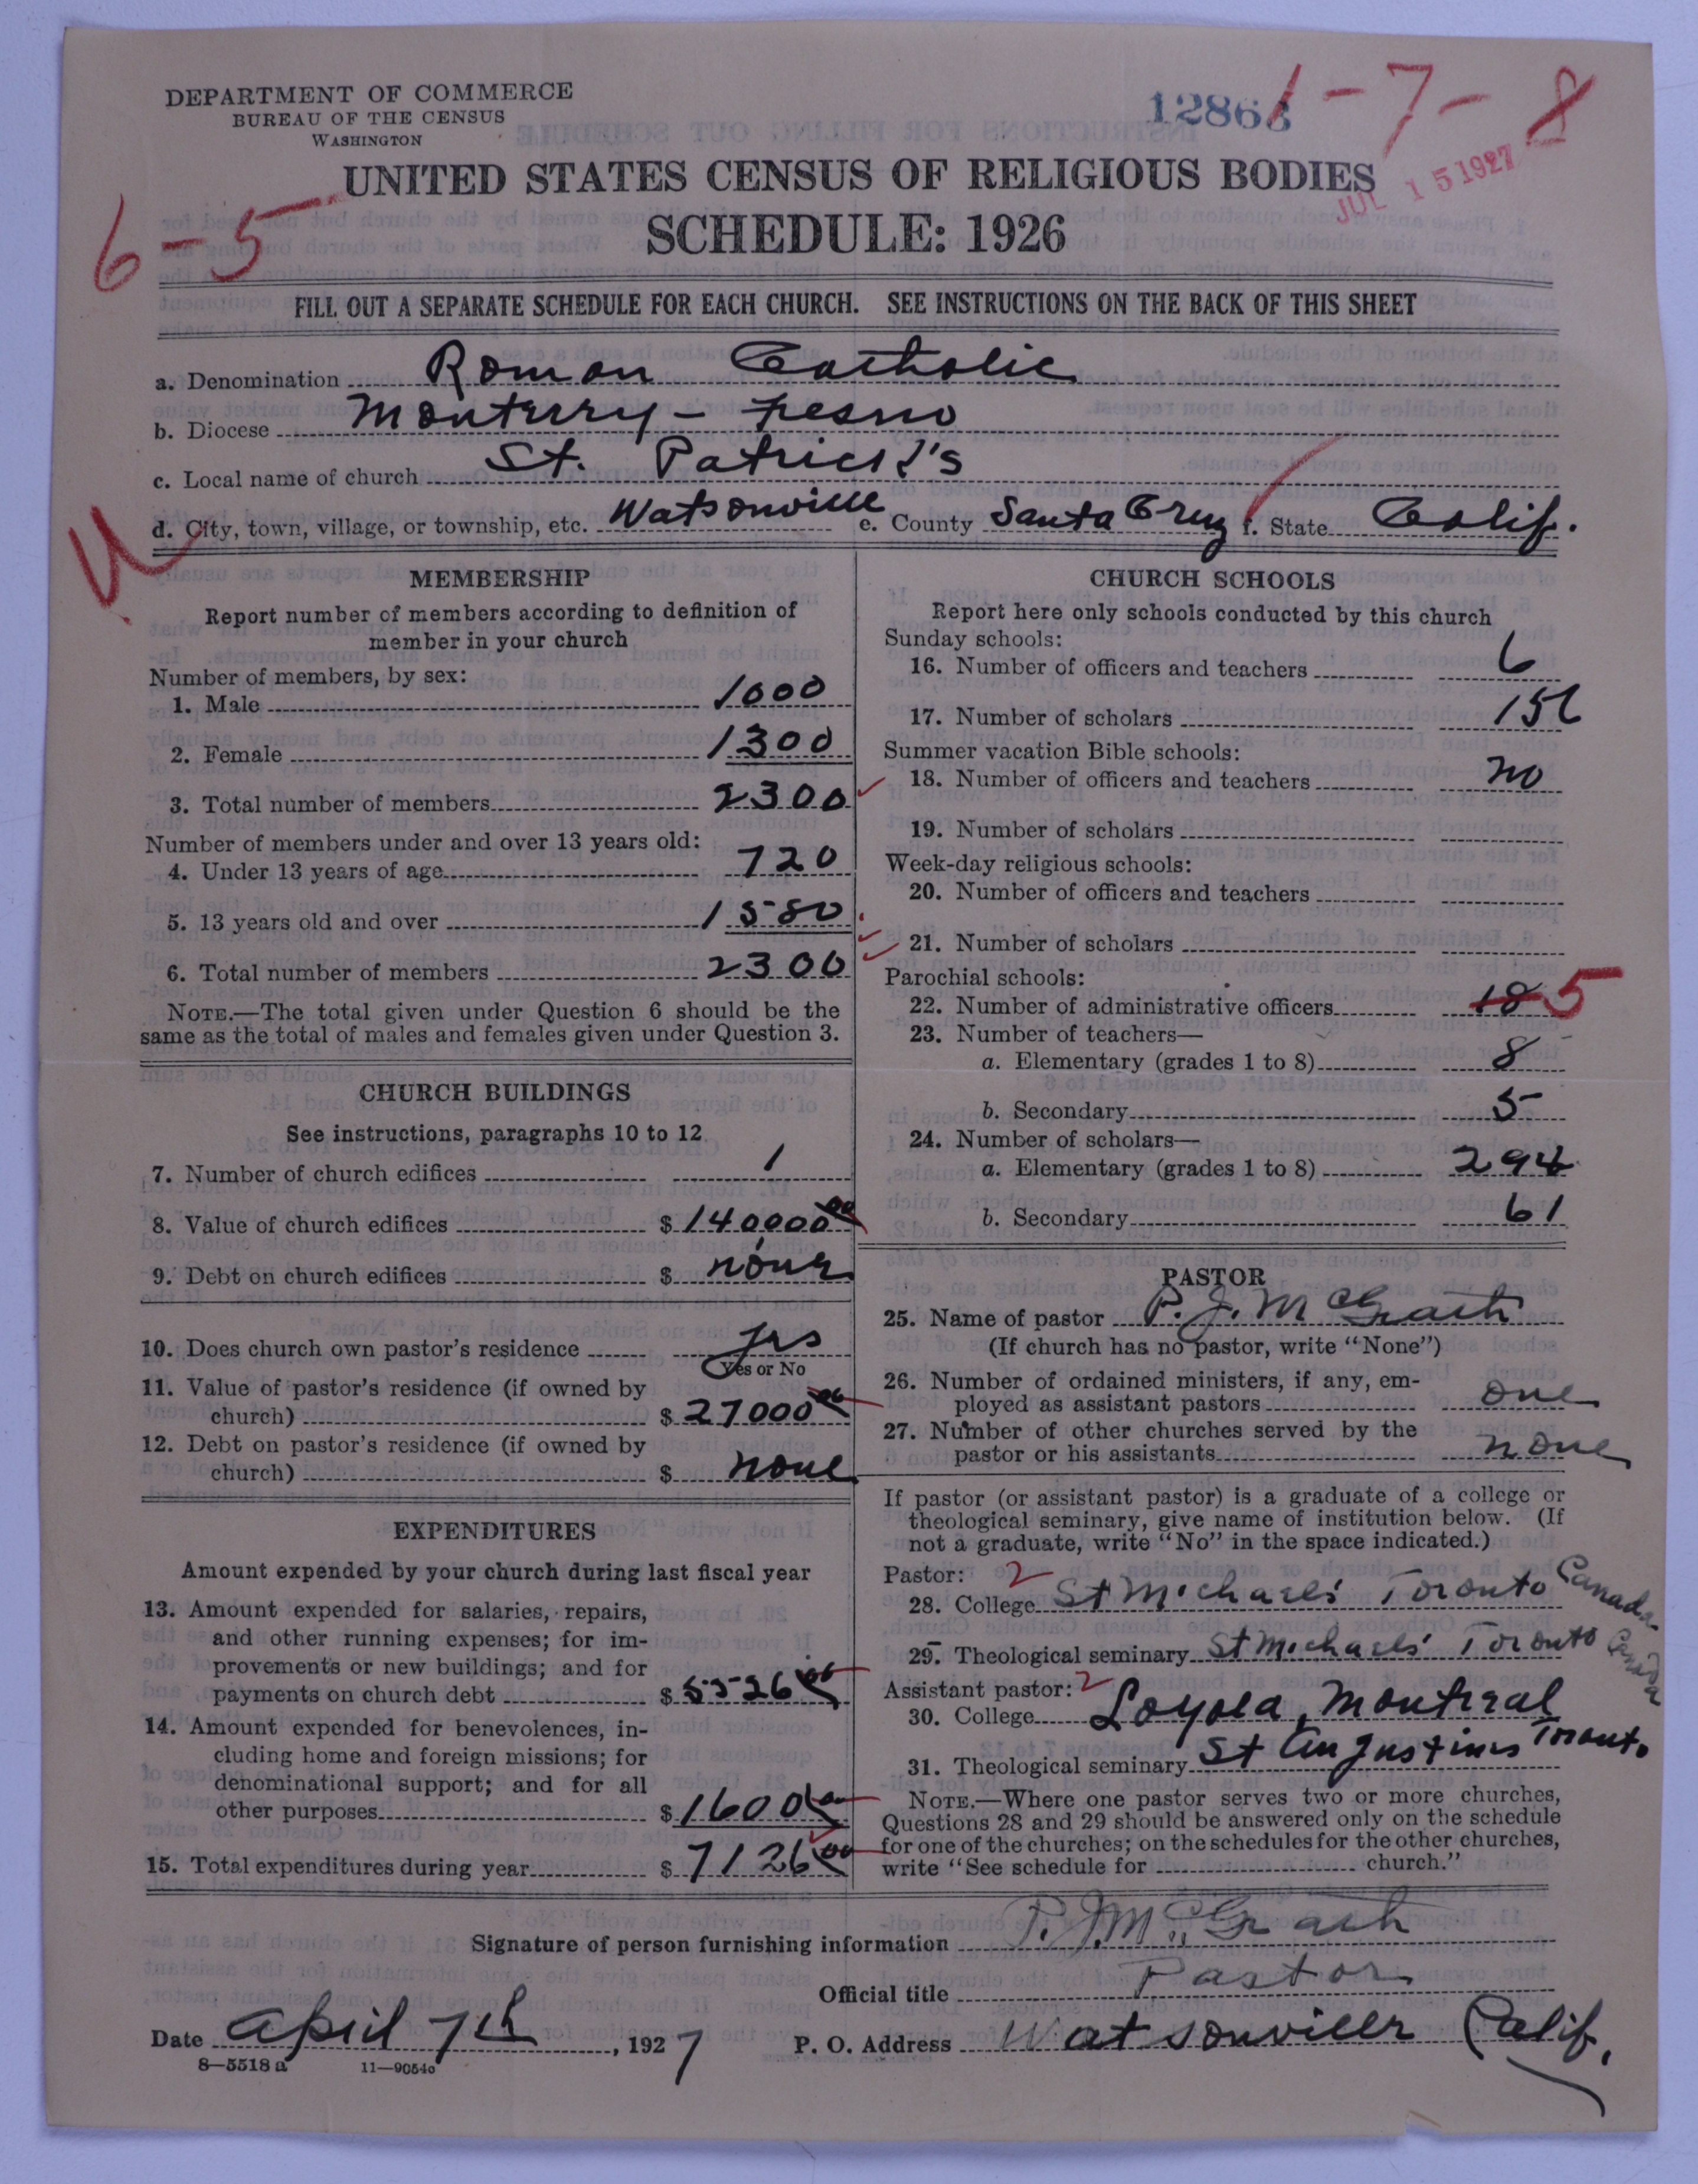 DEPARTMENT OF COMMERCE
BUREAU OF THE CENSUS
WASHINGTON
12863
1-7-8
JUL 15 1927
UNITED STATES CENSUS OF RELIGIOUS BODIES
SCHEDULE: 1926
6-5
FILL OUT A SEPARATE SCHEDULE FOR EACH CHURCH. SEE INSTRUCTIONS ON THE BACK OF THIS SHEET
a. Denomination Roman Catholic
b. Diocese Monterey - Fresno
c. Local name of church St. Patrick's
d. City, town, village, or township, etc. Watsonville e. County Santa Cruz f. State Calif.
U
MEMBERSHIP
Report number of members according to definition of
member in your church
Number of members, by sex:
1. Male 1000
2. Female 1300
3. Total number of members 2300
Number of members under and over 13 years old:
4. Under 13 years of age 720
5. 13 years old and over 1580
6. Total number of members 2300
NOTE.—The total given under Question 6 should be the
same as the total of males and females given under Question 3.
CHURCH BUILDINGS
See instructions, paragraphs 10 to 12
7. Number of church edifices 1
8. Value of church edifices $ 140000 00
9. Debt on church edifices $ none
10. Does church own pastor's residence yes
Yes or No
11. Value of pastor's residence (if owned by
church) $ 27000 00
12. Debt on pastor's residence (if owned by
church) $ none
EXPENDITURES
Amount expended by your church during last fiscal year
13. Amount expended for salaries, repairs,
and other running expenses; for im-
provements or new buildings; and for
payments on church debt $ 5526 00
14. Amount expended for benevolences, in-
cluding home and foreign missions; for
denominational support; and for all
other purposes $ 1600 00
15. Total expenditures during year $ 7126 00
CHURCH SCHOOLS
Report here only schools conducted by this church
Sunday schools:
16. Number of officers and teachers 6
17. Number of scholars 156
Summer vacation Bible schools:
18. Number of officers and teachers no
19. Number of scholars
Week-day religious schools:
20. Number of officers and teachers
21. Number of scholars
Parochial schools:
22. Number of administrative officers 18 5
23. Number of teachers—
a. Elementary (grades 1 to 8) 8
b. Secondary 5
24. Number of scholars—
a. Elementary (grades 1 to 8) 294
b. Secondary 61
PASTOR
25. Name of pastor P. J. McGrath
(If church has no pastor, write "None")
26. Number of ordained ministers, if any, em-
ployed as assistant pastors one
27. Number of other churches served by the
pastor or his assistants none
If pastor (or assistant pastor) is a graduate of a college or
theological seminary, give name of institution below. (If
not a graduate, write "No" in the space indicated.)
Pastor: 2
28. College St Michaels' Toronto Canada
29. Theological seminary St Michaels' Toronto Canada
Assistant pastor: 2
30. College Loyola, Montreal
31. Theological seminary St Augustines Toronto
NOTE.—Where one pastor serves two or more churches,
Questions 28 and 29 should be answered only on the schedule
for one of the churches; on the schedules for the other churches,
write "See schedule for church."
Signature of person furnishing information P. J. McGrath
Official title Pastor
Date April 7th, 1927 P. O. Address Watsonville Calif.
8—5518 a 11—9054o